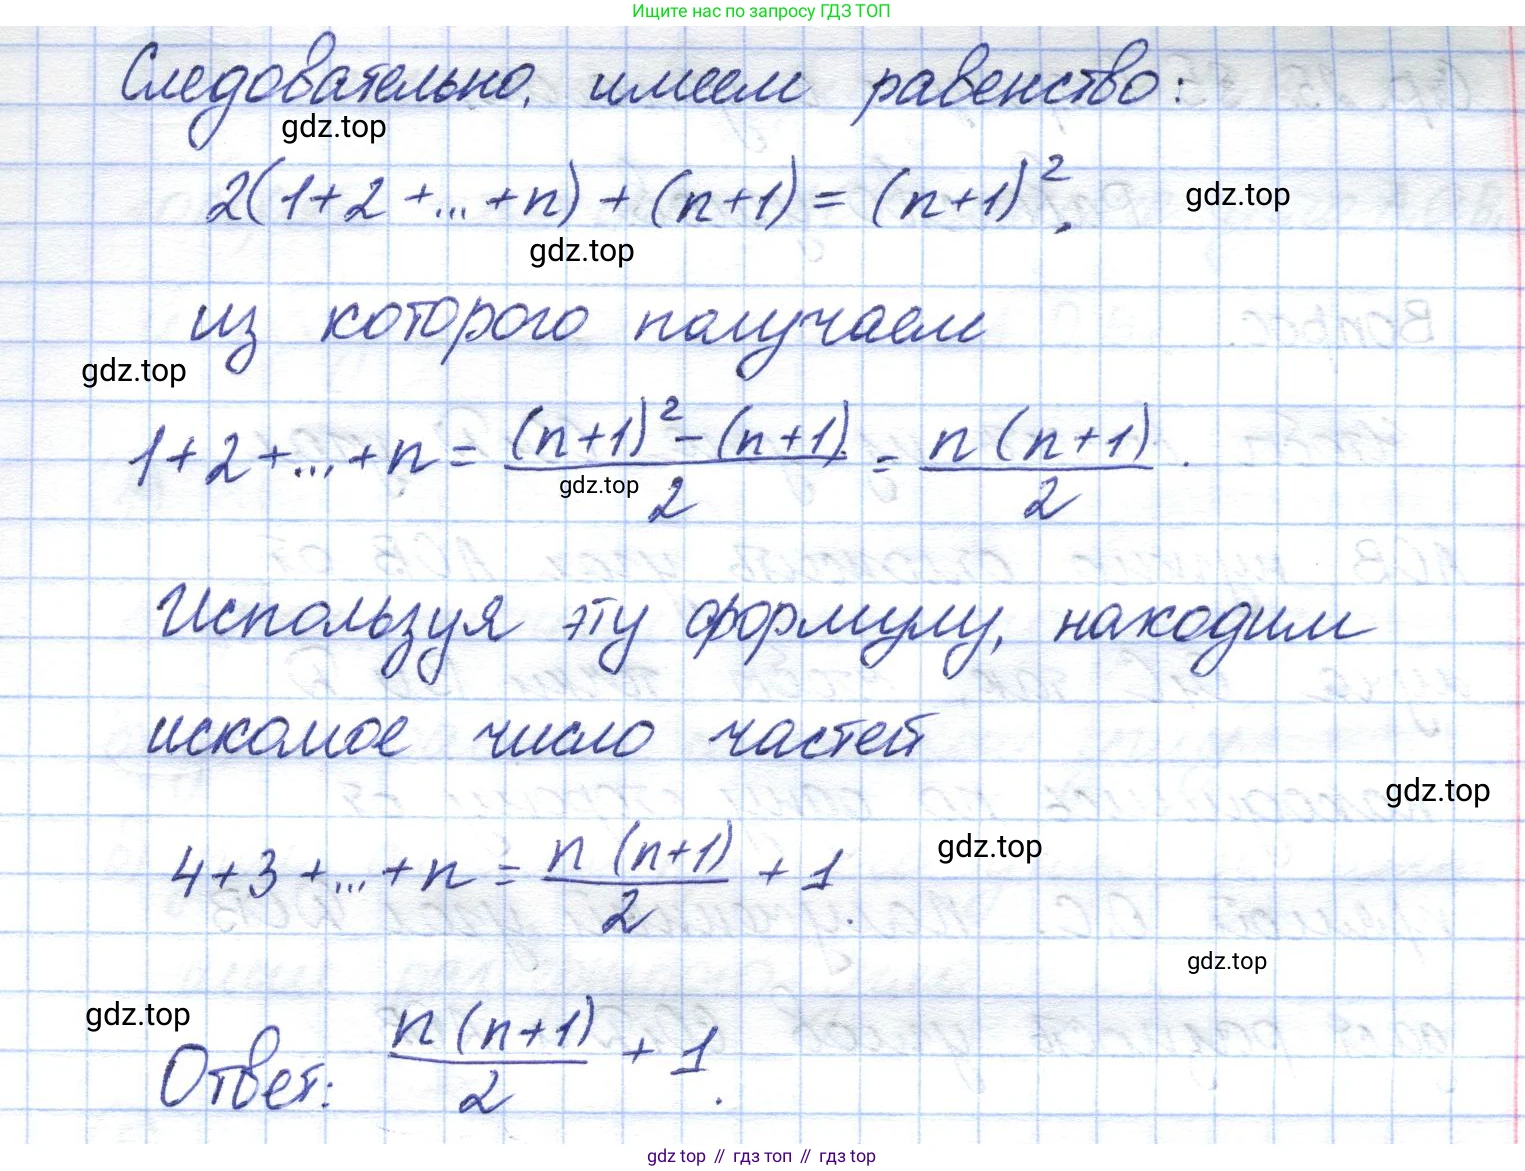 Ищите нас по запросу ГДЗ ТОП
Следовательно, имеем равенство:
gdz.top
2(1+2+...+n)+(n+1)=(n+1)²,
gdz.top
gdz.top
из которого получаем
gdz.top
1+2+...+n = (n+1)²-(n+1) / 2 = n(n+1) / 2 .
gdz.top
Используя эту формулу, находим
искомое число частей
gdz.top
4+3+...+n = n(n+1) / 2 + 1.
gdz.top
gdz.top
gdz.top
Ответ: n(n+1) / 2 + 1.
gdz top // гдз топ // гдз top